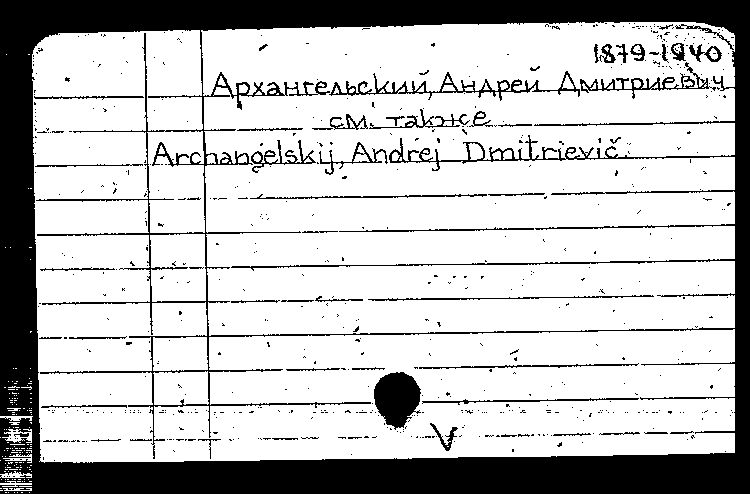 1879-1940
Архангельский, Андрей Дмитриевич
см. также
Archangelskij, Andrej Dmitrievič.
V